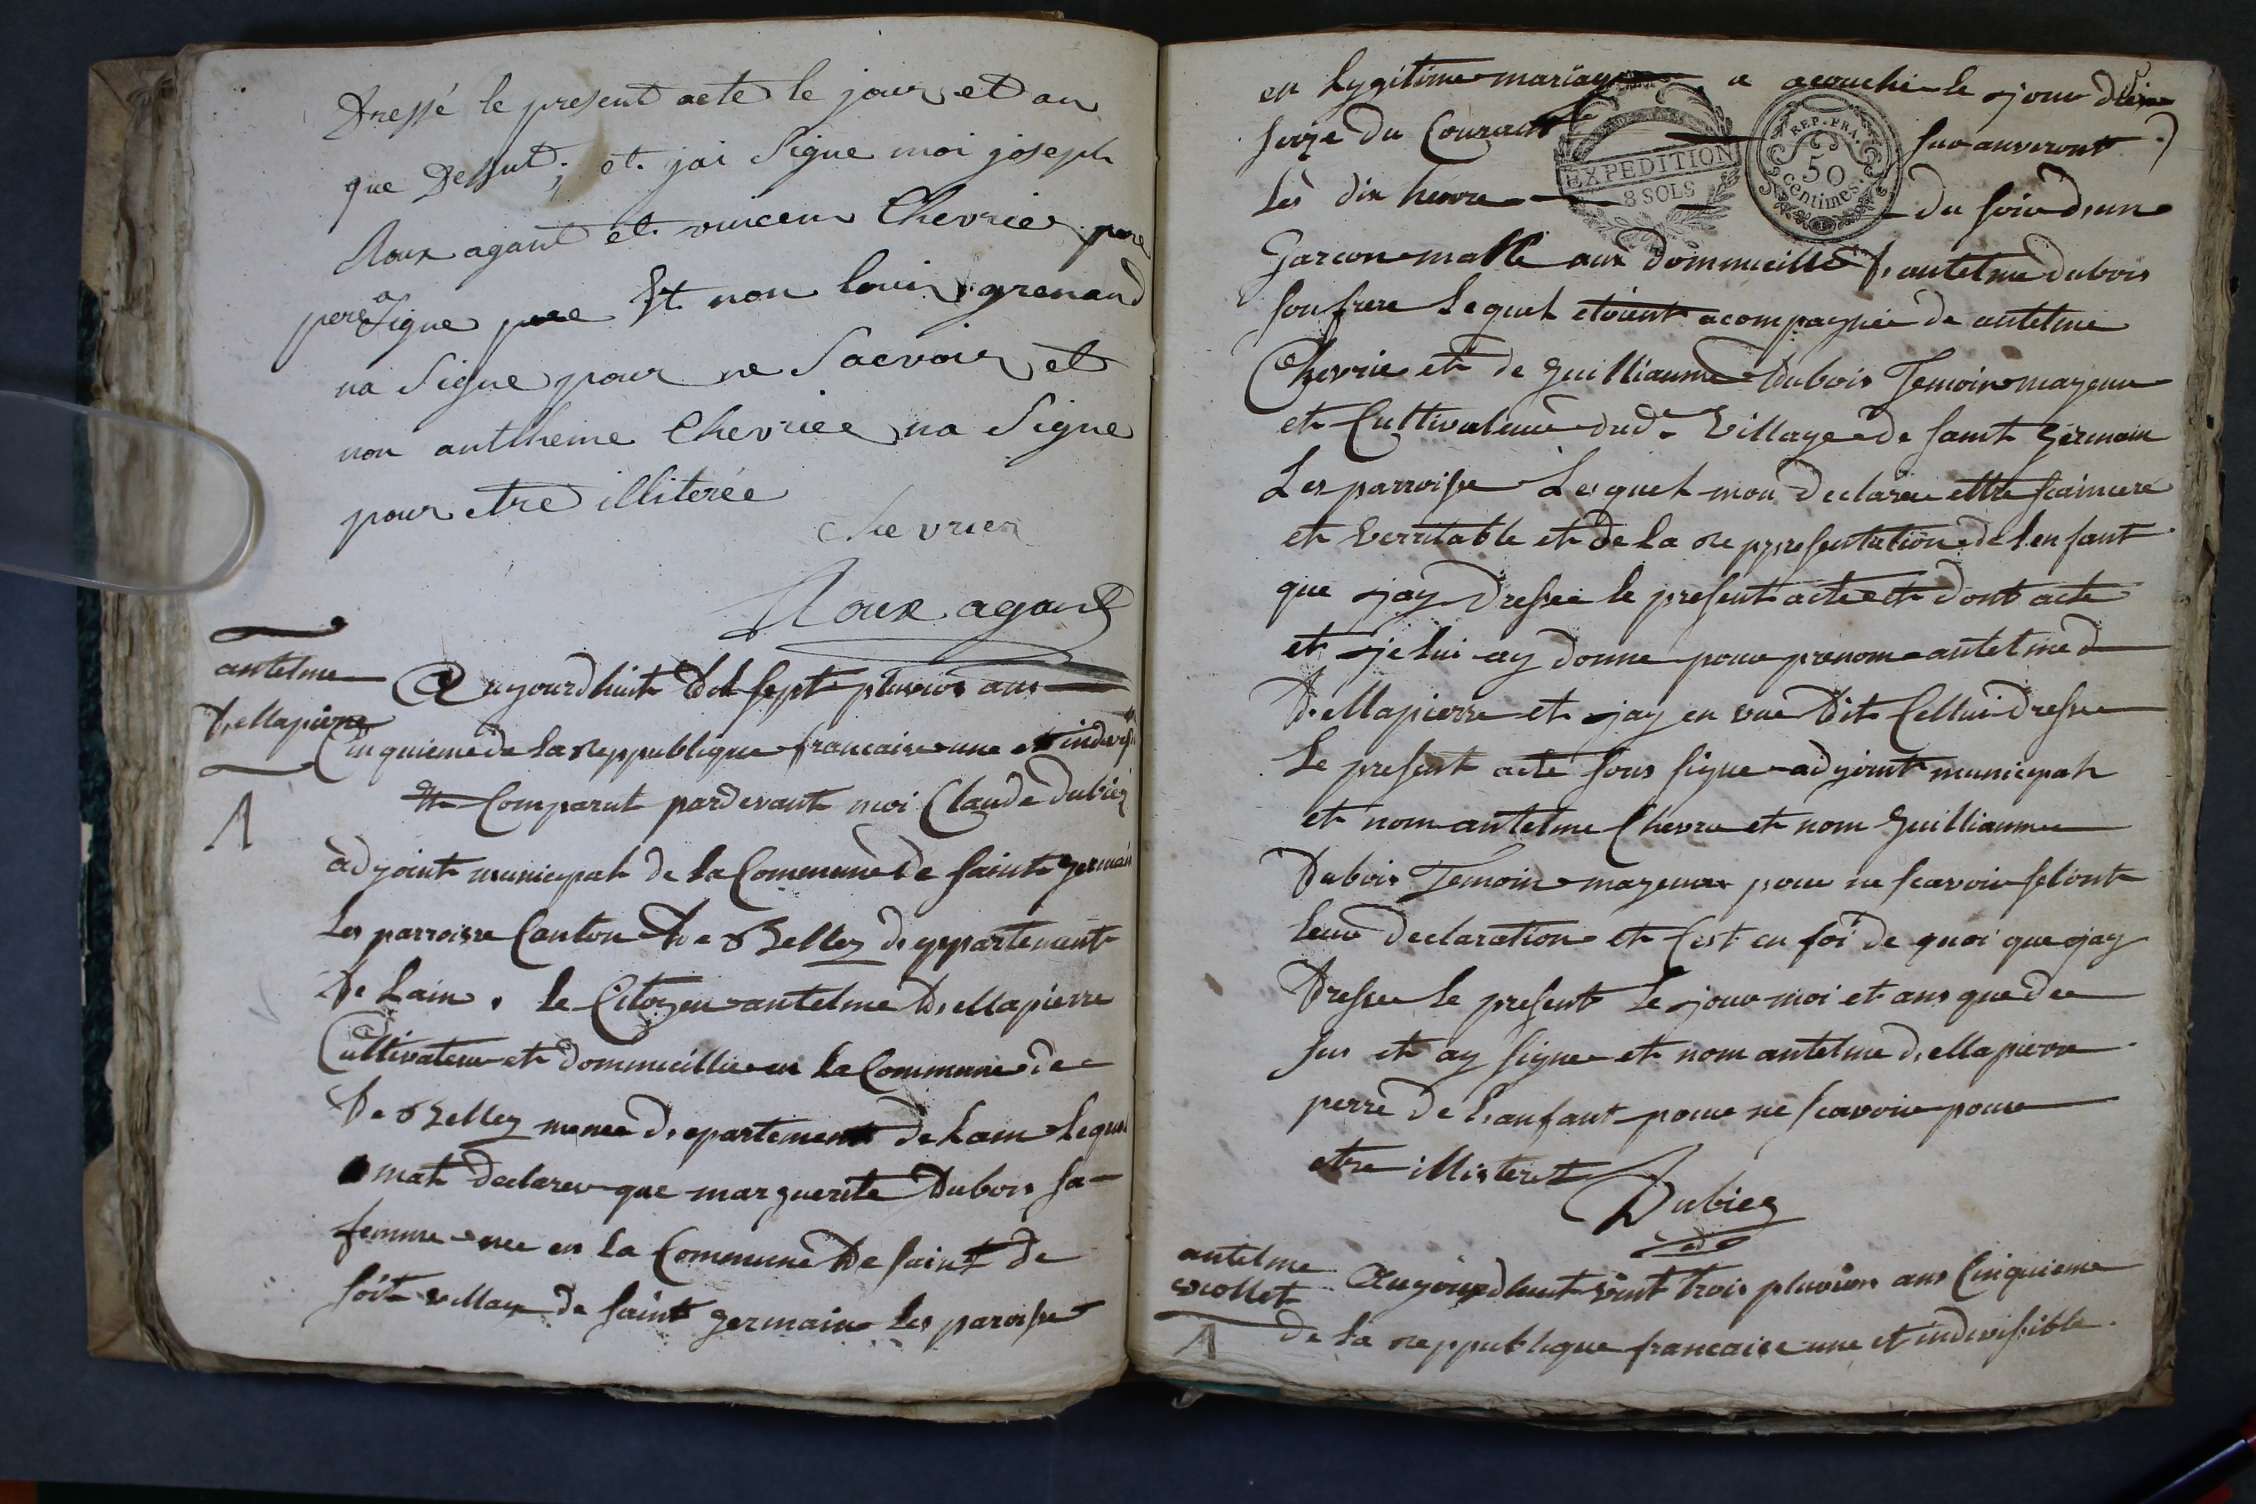 Dressé le present acte le jour et an
que Dessut; et jai Signe moi joseph
Roux agant et vincent Chevrier pere
pere a Signe pere Et non louis grenand
na Signe pour ne Sacvoir et
non anthheme Chevrier na Signe
pour etre illiterée
Chevrier
Roux agant
antelme
Dellapierre
1
aujourdhuit dix sept pluvios ans
Cinquieme de la Reppublique francaise une et indivis
Et Comparut pardevant moi Claude Dubiez
adjoint municipah de la Commune de saint germain
Les parroisse Canton de Belley deppartement
De Lain. le Citoyen antelme Dellapierre
Cultivateur et dommicillie en la Commune de
De Belley meme departement de Lain lequel
mah declarer que marguerite Dubois sa
femme nee en la Commune De saint de
soit village de saint germain Les paroisse
en Lygitime mariage a acouche le jour dier
seize du Courant sur anviront
Les dix heure du soir dun
Garcon malle aux dommicille d'antelme dubois
son frere Lequel etoient acompagnée de antelme
Chevrie et de guilliaume Dubois Temoin mageur
et Cultivateur dud. Village de saint Germain
Les parroisse Lesquel mon declaree ettre saincere
et verritable et de la reppresentation de lenfant
que jay Dressee le present acte et dont acte
et je lui ay donne pour prenom antelme d
Dellapierre et jay en vue dit Cellui dresse
Le present acte sous signe adjoint municipah
et nom antelme Chevre et nom guilliaume
Dubois Temoin mageur pour ne scavoir selont
leur declaration et Cest en foi de quoi que jay
Dressee le present le jour moi et ans que de
sus et ay signe et nom antelme dellapierre
perre de Lanfant pour ne scavoir pour
etre illisteret
Dubiez
adj
antelme
viollet
1
aujourdhuit vint trois pluvios ans Cinquieme
de la reppublique francaise une et indivissible.
EXPEDITION
8 SOLS
REP. FRA.
50
centimes.